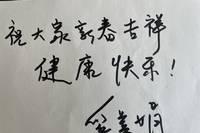 祝大家新春吉祥
健康快乐！